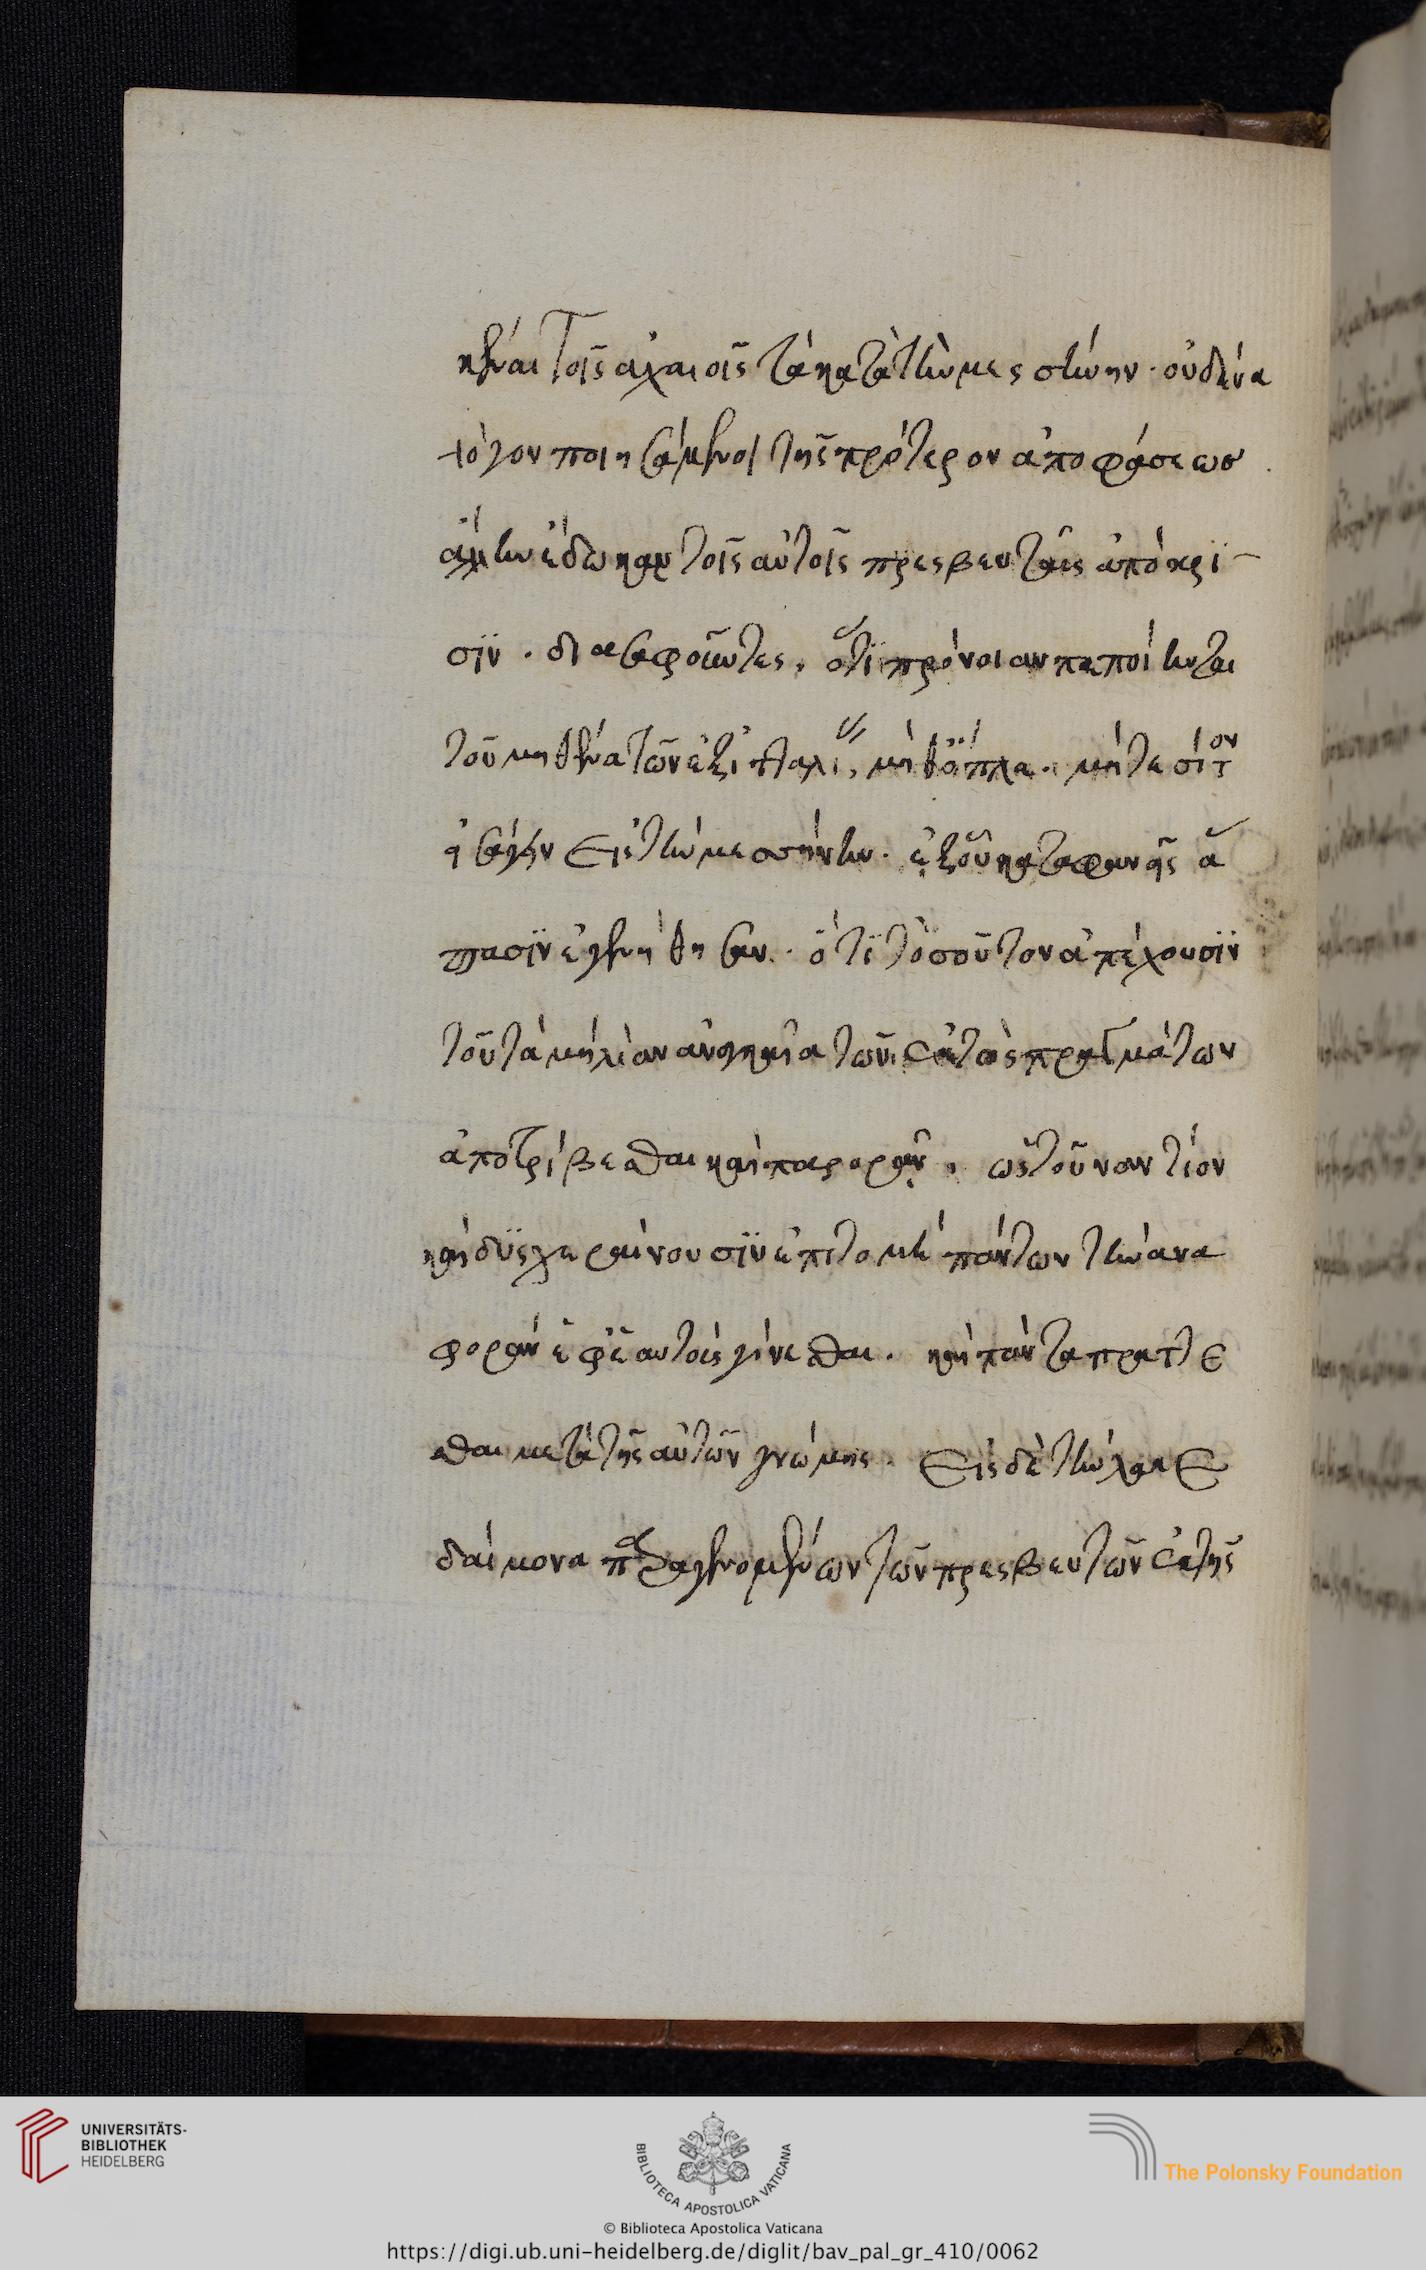 κέναι τοῖς ἀχαιοῖς τὰ κατὰ τὴν μεσσήνην· οὐδένα
λόγον ποιησάμενοι τῆς πρότερον ἀποφάσεως
ἅμην ἔδωκαν τοῖς αὐτοῖς πρεσβευταῖς ἀπόκρι
σϊν· διασαφοῦντες, ὅτϊ πρόνοιαν πεποίηνται
τοῦ μηθένα τῶν ἐξ ἰταλίας, μήθ' ὅπλα· μήτε σίτον
εἰσάγειν εἰς τὴν μεσσήνην· ἐξ οὗ καταφανεῖς ἅ
πασϊν ἐγενήθησαν· ὅτϊ τοσοῦτον ἀπέχουσϊν
τοῦ τὰ μὴ λίαν ἀναγκαῖα τῶν ἐκτὸς πραγμάτων
ἀποτρίβεσθαι καὶ παρορᾶν, ὡς τοὐναντίον
καὶ δυσχεραίνουσϊν ἐπὶ τὸ μὴ πάντων τὴν ἀνα
φορὰν ἐφ' ἑαυτοὺς γίνεσθαι· καὶ πάντα πράττε
σθαι μετὰ τῆς αὐτῶν γνώμης· εἰς δὲ τὴν λακε
δαίμονα παραγενομένων τῶν πρεσβευτῶν ἐκ τῆς
UNIVERSITÄTS-
BIBLIOTHEK
HEIDELBERG
BIBLIOTECA APOSTOLICA VATICANA
The Polonsky Foundation
© Biblioteca Apostolica Vaticana
https://digi.ub.uni-heidelberg.de/diglit/bav_pal_gr_410/0062